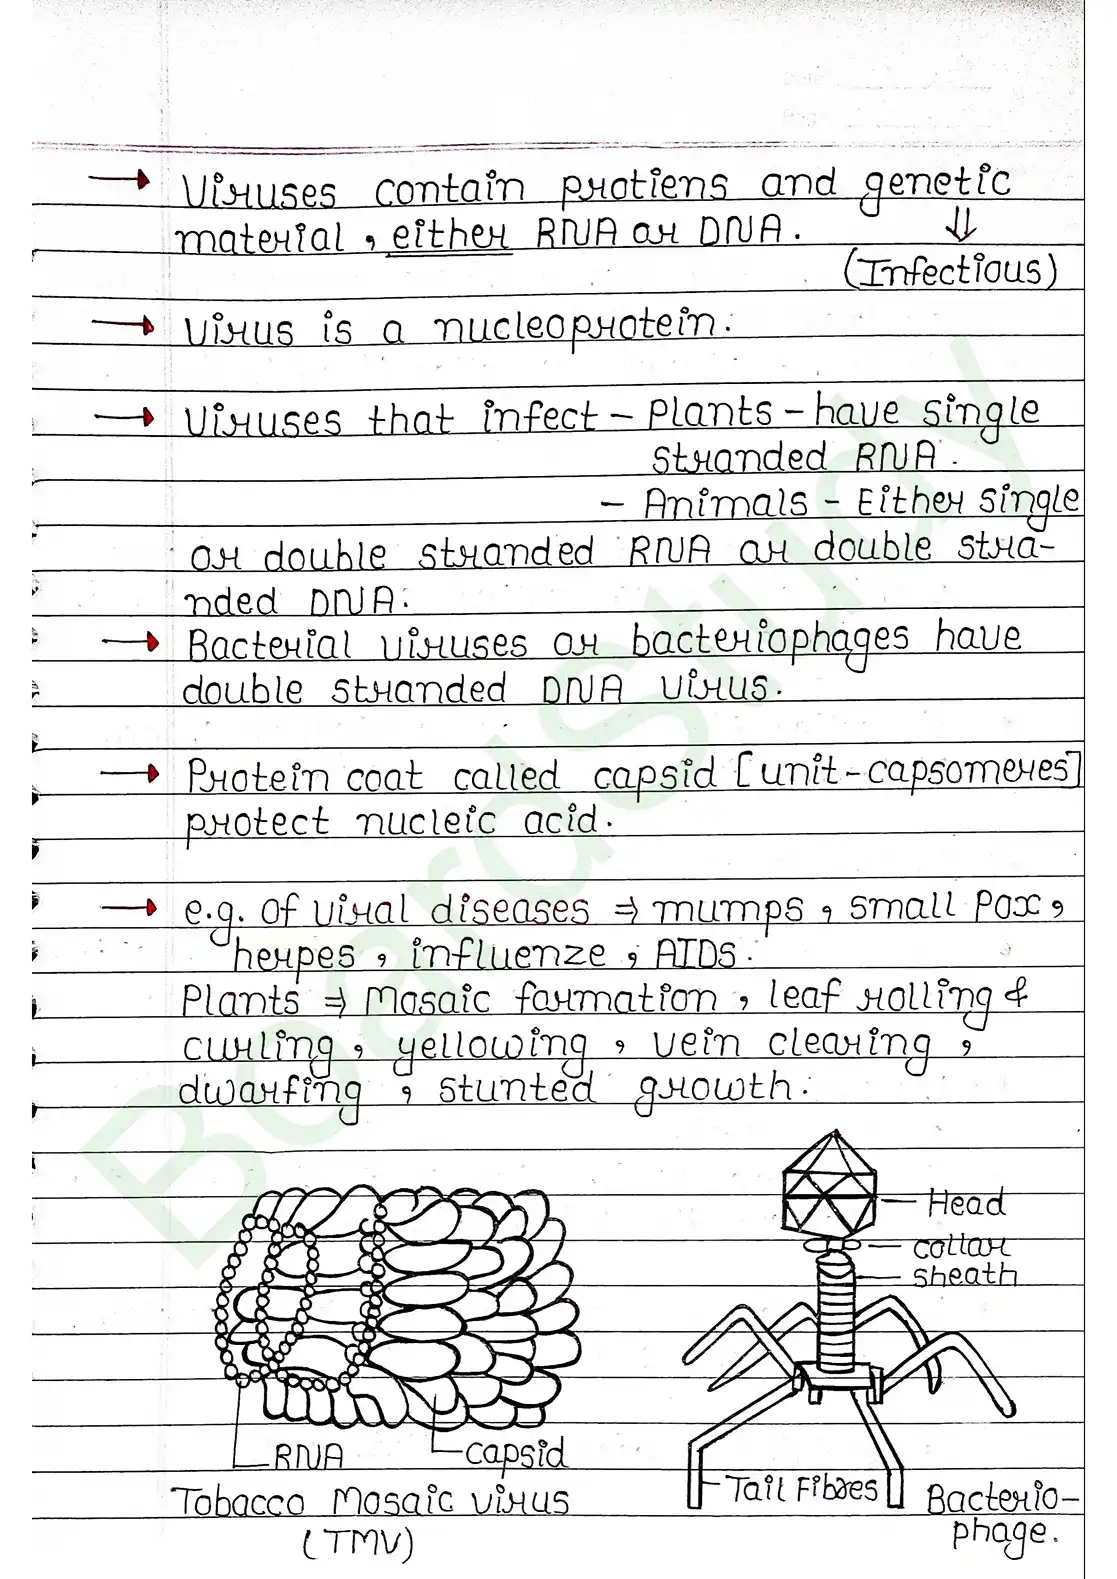 → Viruses contain protiens and genetic
material, either RNA or DNA. ⇓
(Infectious)
→ Virus is a nucleoprotein.
→ Viruses that infect - Plants - have single
stranded RNA.
- Animals - Either single
or double stranded RNA or double stra-
nded DNA.
→ Bacterial viruses or bacteriophages have
double stranded DNA virus.
→ Protein coat called capsid [unit-capsomeres]
protect nucleic acid.
→ e.g. of viral diseases ⇒ mumps, small Pox,
herpes, influenze, AIDS.
Plants ⇒ Mosaic formation, leaf rolling &
curling, yellowing, vein clearing,
dwarfing, stunted growth.
Head
collar
sheath
RNA
capsid
Tail Fibres
Tobacco Mosaic virus
(TMV)
Bacterio-
phage.
BoardStudy